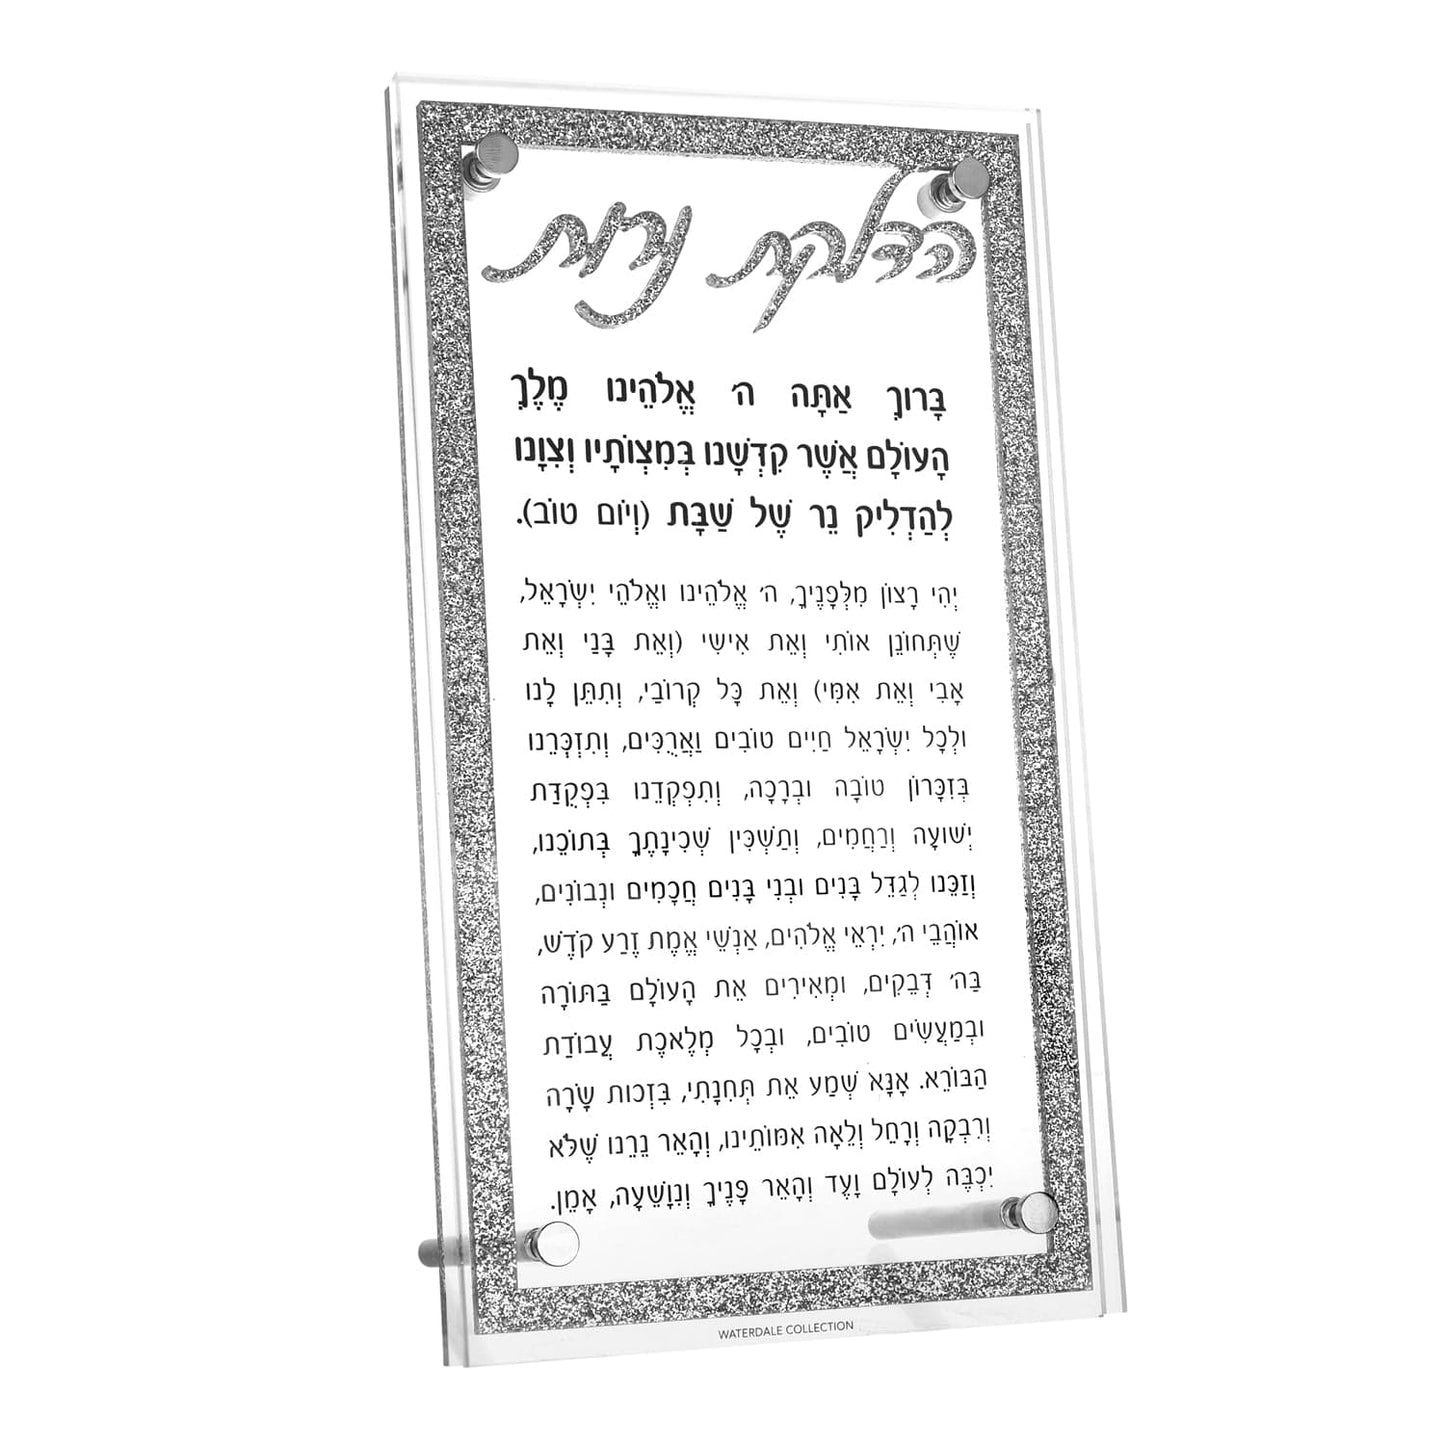 הדלקת נרות
בָּרוּךְ אַתָּה ה׳ אֱלֹהֵינוּ מֶלֶךְ
הָעוֹלָם אֲשֶׁר קִדְּשָׁנוּ בְּמִצְוֹתָיו וְצִוָּנוּ
לְהַדְלִיק נֵר שֶׁל שַׁבָּת (וְיוֹם טוֹב).
יְהִי רָצוֹן מִלְּפָנֶיךָ, ה׳ אֱלֹהֵינוּ וֵאֱלֹהֵי יִשְׂרָאֵל,
שֶׁתְּחוֹנֵן אוֹתִי וְאֶת אִישִׁי (וְאֶת בָּנַי וְאֶת
אָבִי וְאֶת אִמִּי) וְאֶת כָּל קְרוֹבַי, וְתִתֵּן לָנוּ
וּלְכָל יִשְׂרָאֵל חַיִּים טוֹבִים וַאֲרֻכִּים, וְתִזְכְּרֵנוּ
בְּזִכָּרוֹן טוֹבָה וּבְרָכָה, וְתִפְקְדֵנוּ בִּפְקֻדַּת
יְשׁוּעָה וְרַחֲמִים, וְתַשְׁכִּין שְׁכִינָתֶךָ בְּתוֹכֵנוּ,
וְזַכֵּנוּ לְגַדֵּל בָּנִים וּבְנֵי בָנִים חֲכָמִים וּנְבוֹנִים,
אוֹהֲבֵי ה׳, יִרְאֵי אֱלֹהִים, אַנְשֵׁי אֱמֶת זֶרַע קֹדֶשׁ,
בַּה׳ דְּבֵקִים, וּמְאִירִים אֶת הָעוֹלָם בַּתּוֹרָה
וּבְמַעֲשִׂים טוֹבִים, וּבְכָל מְלֶאכֶת עֲבוֹדַת
הַבּוֹרֵא. אָנָּא שְׁמַע אֶת תְּחִנָּתִי, בִּזְכוּת שָׂרָה
וְרִבְקָה וְרָחֵל וְלֵאָה אִמּוֹתֵינוּ, וְהָאֵר נֵרֵנוּ שֶׁלֹּא
יִכְבֶּה לְעוֹלָם וָעֶד וְהָאֵר פָּנֶיךָ וְנִוָּשֵׁעָה, אָמֵן.
WATERDALE COLLECTION